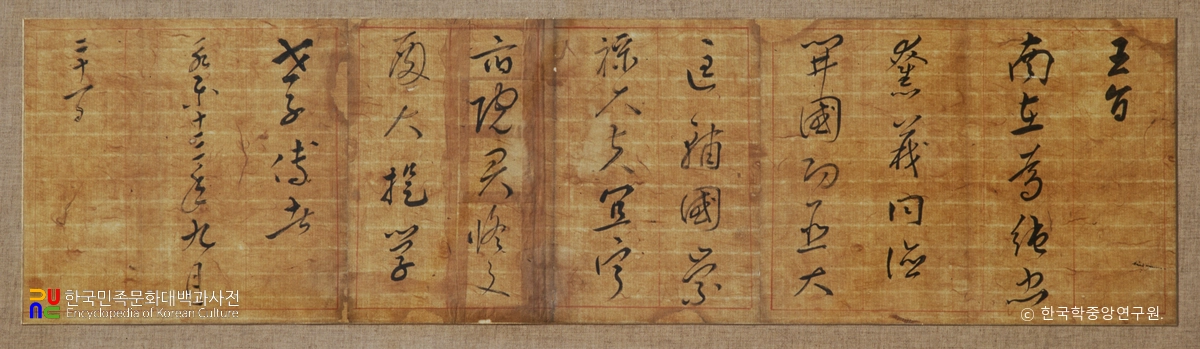 王旨
南在爲純忠
奮義同德
開國功臣大
匡輔國崇
祿大夫宜寧
府院君修文
殿大提學
世子傅者
永樂十三年九月
二十一日
한국민족문화대백과사전
Encyclopedia of Korean Culture
© 한국학중앙연구원.